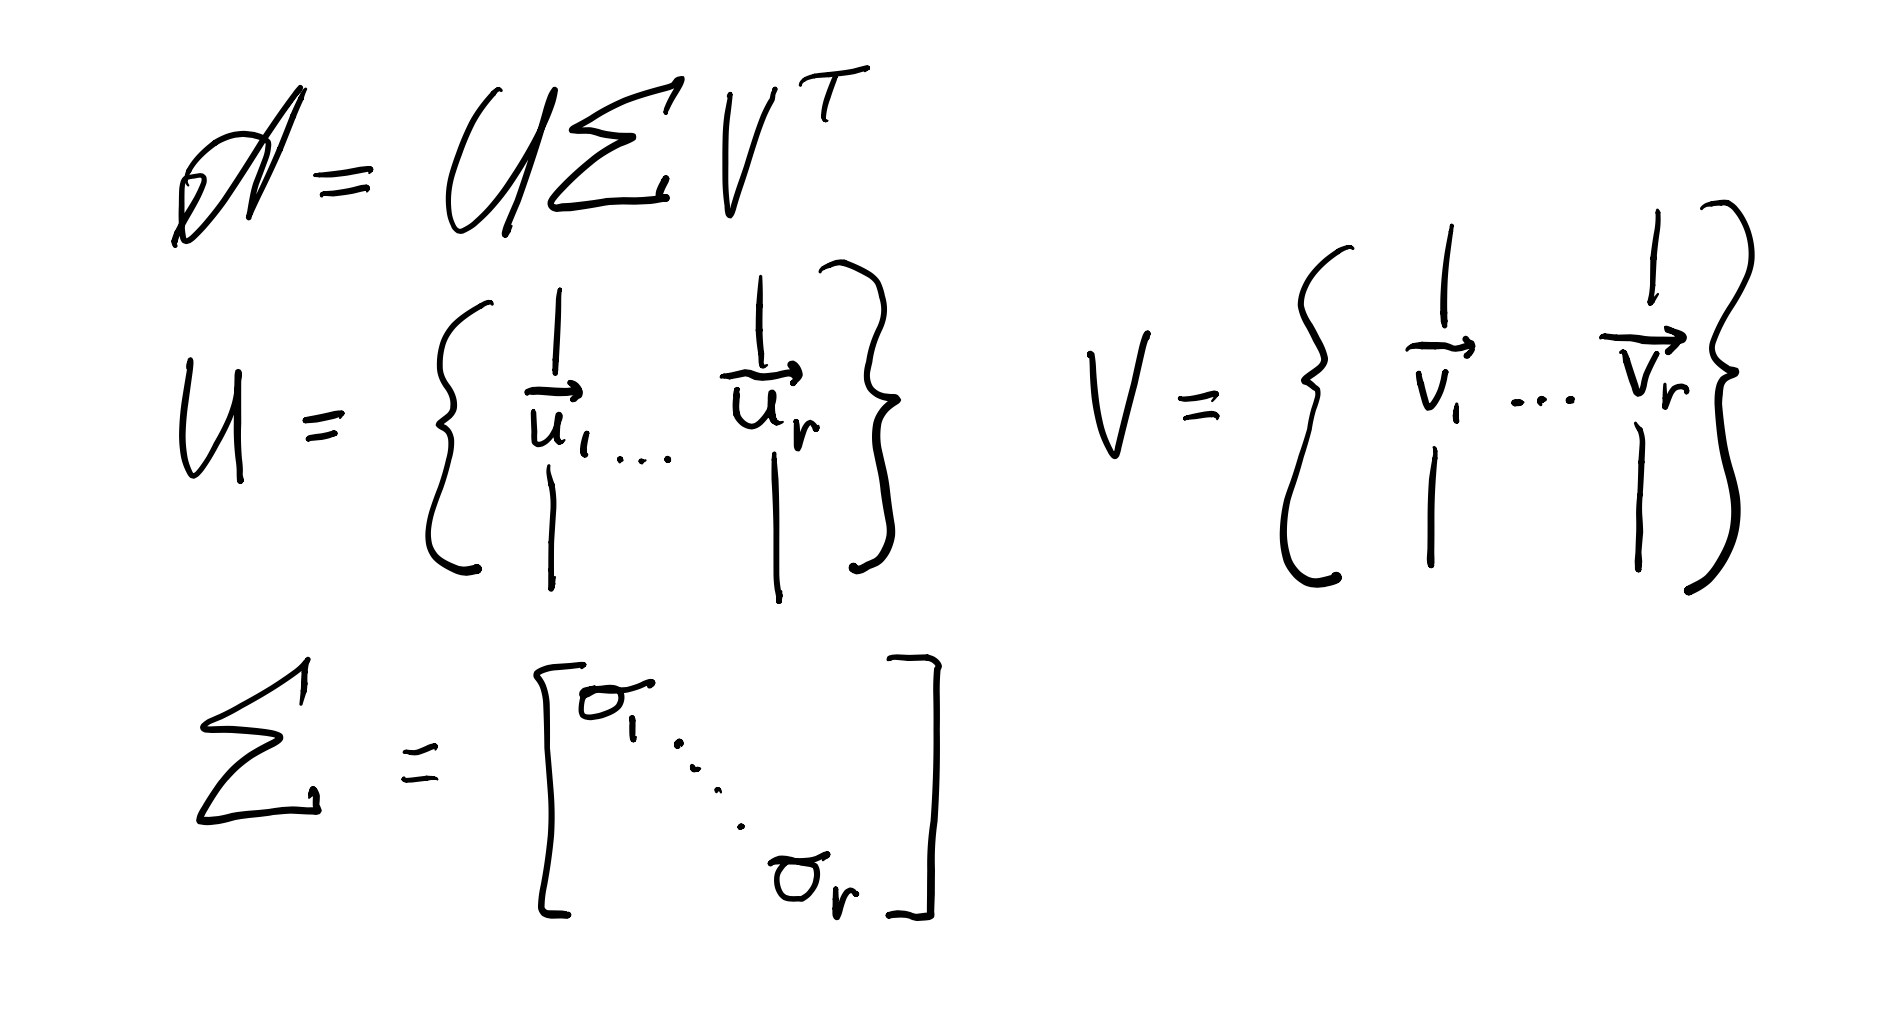 A = UΣV^T
U = { | | u⃗₁ ... u⃗ᵣ | | } V = { | | v⃗₁ ... v⃗ᵣ | | }
Σ = [ σ₁ ⋱ σᵣ ]